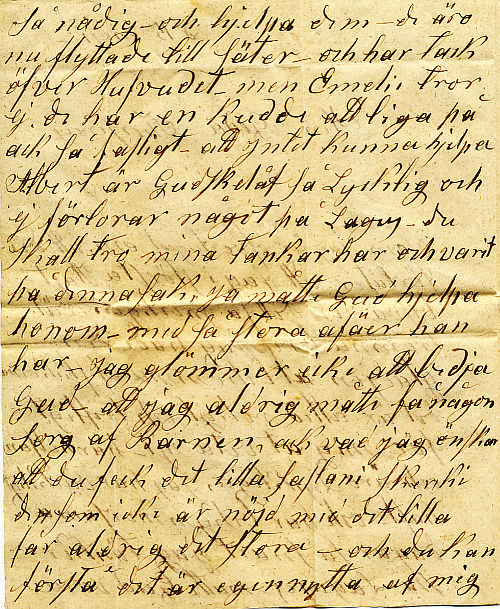 så nådig och hjelpa dem - de äro
nu flyttade till Säter - och har tack
öfver Hufvudet - men Emelie tror
ej de har en kudde att liga på
ack så fasligt - att Intet kunna hjelpa
Albert är Gudskelåf så Lycklig och
ej förlorar något på Lagus - du
skall tro mina tankar har och varit
på denna sak, ja måtte Gud hjelpa
honom - med så stora afäer han
har - Jag glömmer icke att bedja
Gud - att jag aldrig måtte få någon
Sorg af Barnen, ack vad jag önskar
att du feck det lilla
som icke är nöjd med det lilla
får aldrig det stora - och du kan
förstå det är egennytta af mig